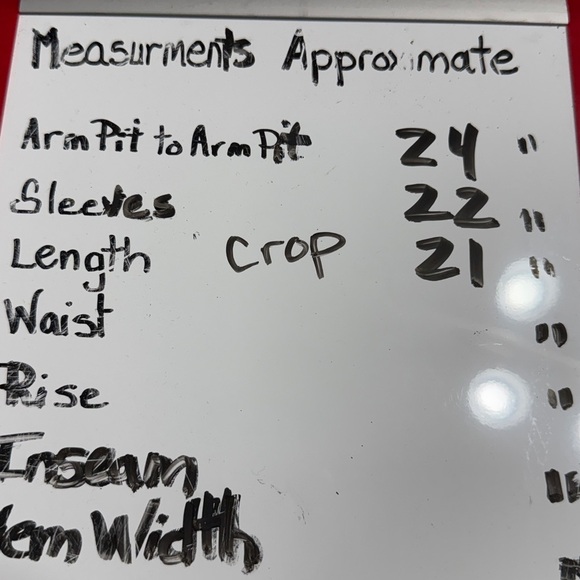 Measurments Approximate
Arm Pit to Arm Pit 24 "
Sleeves 22 "
Length crop 21 "
Waist "
Rise "
Inseam "
em Width "